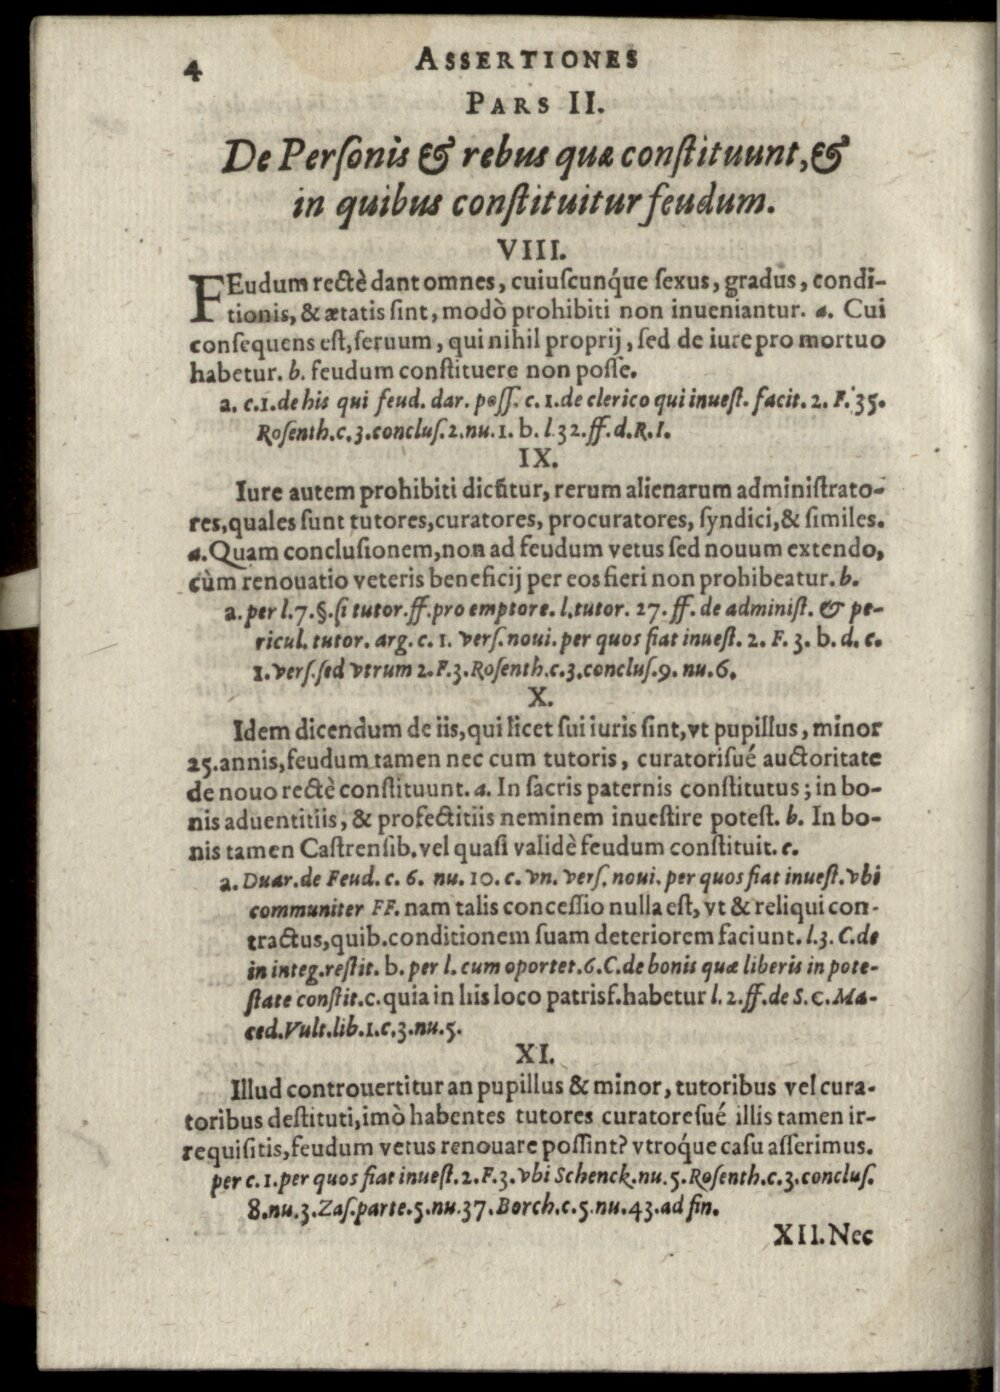 4 ASSERTIONES
PARS II.
De Perſonis & rebus quæ conſtituunt, &
in quibus conſtituitur feudum.
VIII.
FEudum rectè dant omnes, cuiuſcunq́ue ſexus, gradus, condi-
tionis, & ætatis ſint, modò prohibiti non inueniantur. a. Cui
conſequens eſt, ſeruum, qui nihil proprij, ſed de iure pro mortuo
habetur. b. feudum conſtituere non poſſe.
a. c.1. de his qui feud. dar. poſſ. c. 1. de clerico qui inueſt. facit. 2. F. 35.
Roſenth.c.3.concluſ.2.nu.1. b. l.32.ff.d.R.I.
IX.
Iure autem prohibiti dicũtur, rerum alienarum adminiſtrato-
res, quales ſunt tutores, curatores, procuratores, ſyndici, & ſimiles.
a. Quam concluſionem, non ad feudum vetus ſed nouum extendo,
cùm renouatio veteris beneficij per eos fieri non prohibeatur. b.
a. per l.7.§.ſi tutor.ff.pro emptore. l.tutor. 27. ff. de adminiſt. & pe-
ricul. tutor. arg. c. 1. verſ. noui. per quos fiat inueſt. 2. F. 3. b. d. c.
1. verſ. ſed vtrum 2. F.3. Roſenth.c.3.concluſ.9. nu.6.
X.
Idem dicendum de iis, qui licet ſui iuris ſint, vt pupillus, minor
25. annis, feudum tamen nec cum tutoris, curatoriſué auctoritate
de nouo rectè conſtituunt. a. In ſacris paternis conſtitutus; in bo-
nis aduentitiis, & profectitiis neminem inueſtire poteſt. b. In bo-
nis tamen Caſtrenſib. vel quaſi validè feudum conſtituit. c.
a. Duar. de Feud. c. 6. nu. 10. c. vn. verſ. noui. per quos fiat inueſt. vbi
communiter FF. nam talis conceſſio nulla eſt, vt & reliqui con-
tractus, quib. conditionem ſuam deteriorem faciunt. l.3. C. de
in integ. reſtit. b. per l. cum oportet. 6. C. de bonis quæ liberis in pote-
ſtate conſtit. c. quia in his loco patrisf. habetur l. 2. ff. de S. C. Ma-
ced. Vult. lib. 1. c. 3. nu. 5.
XI.
Illud controuertitur an pupillus & minor, tutoribus vel cura-
toribus deſtituti, imò habentes tutores curatoreſué illis tamen ir-
requiſitis, feudum vetus renouare poſſint? vtroq́ue caſu aſſerimus.
per c. 1. per quos fiat inueſt. 2. F. 3. vbi Schenck. nu. 5. Roſenth. c. 3. concluſ.
8. nu. 3. Zaſ. parte. 5. nu. 37. Borch. c. 5. nu. 43. ad fin.
XII. Nec